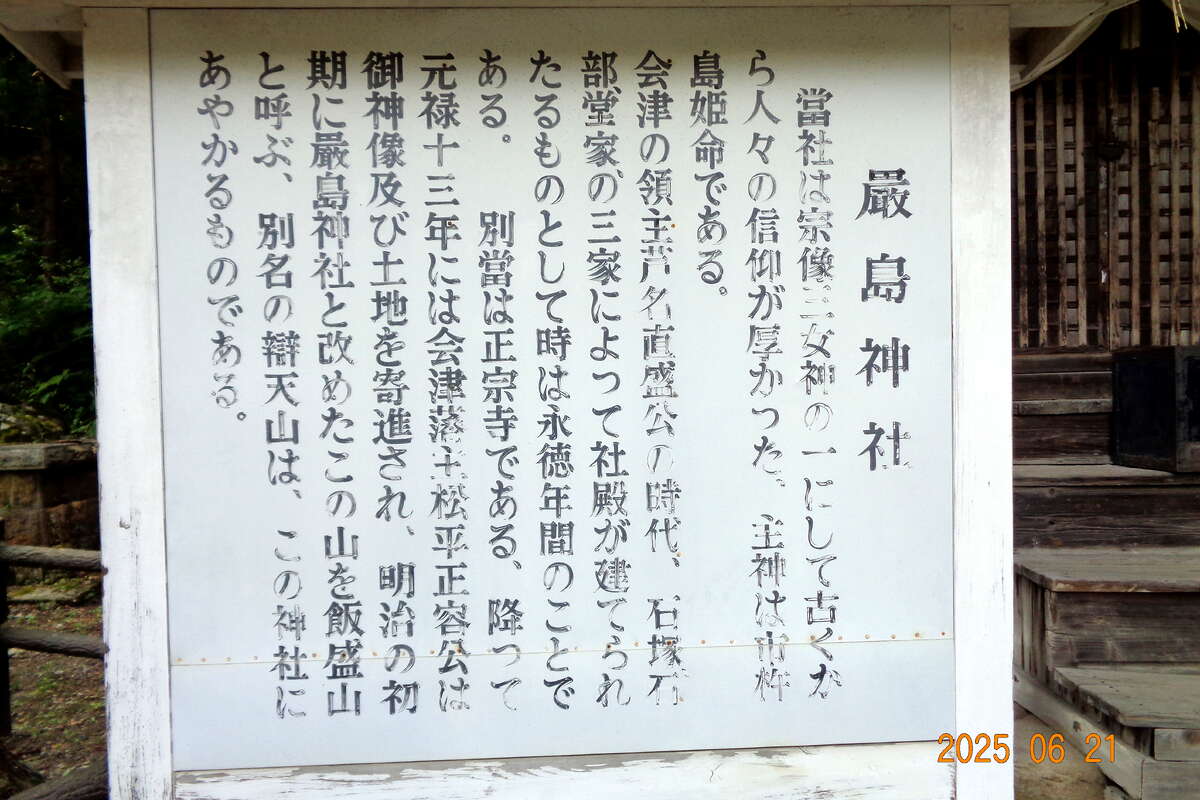 嚴島神社
當社は宗像三女神の一にして古くか
ら人々の信仰が厚かった、主神は市杵
島姫命である。
会津の領主芦名直盛公の時代、石塚石
部、堂家の、三家によって社殿が建てられ
たるものとして時は永徳年間のことで
ある。 別當は正宗寺である、降って
元禄十三年には会津藩主松平正容公は
御神像及び土地を寄進され、明治の初
期に嚴島神社と改めたこの山を飯盛山
と呼ぶ、別名の辯天山は、この神社に
あやかるものである。
2025 06 21